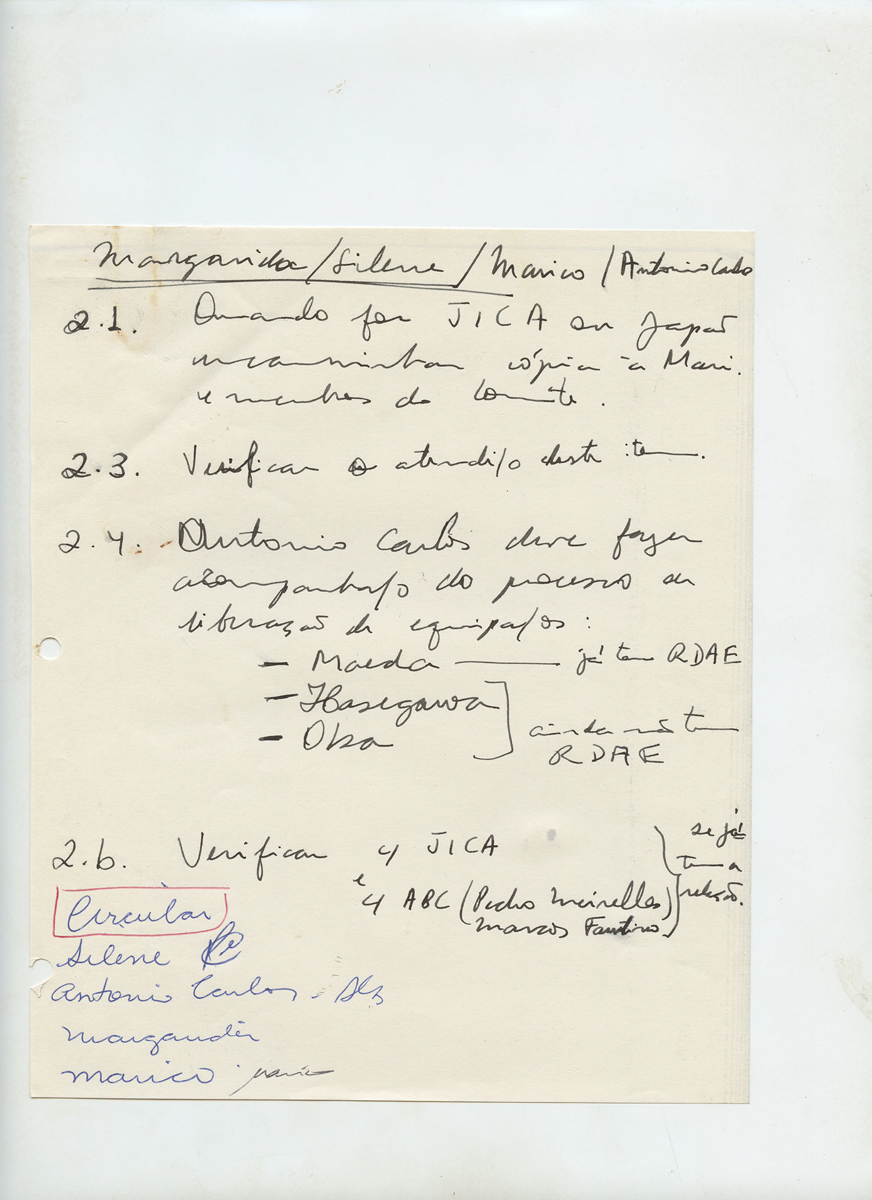 Margarida/Silene/Marico/Antonio Carlos
2.1. Quando for JICA ou Japão
encaminhar cópia à Mari.
e membros do Comitê.
2.3. Verificar o atendi/o deste item.
2.4. Antonio Carlos deve fazer
acompanha/o do processo de
liberação de equipa/os:
- Maeda — já tem RDAE
- Hasegawa
- Olsa
ainda não tem
RDAE
2.b. Verificar c/ JICA
e c/ ABC (Pedro Meirelles)
Marcos Faustino
se já
tem a
relação.
Circular
Silene
Antonio Carlos -
Margarida
Marico